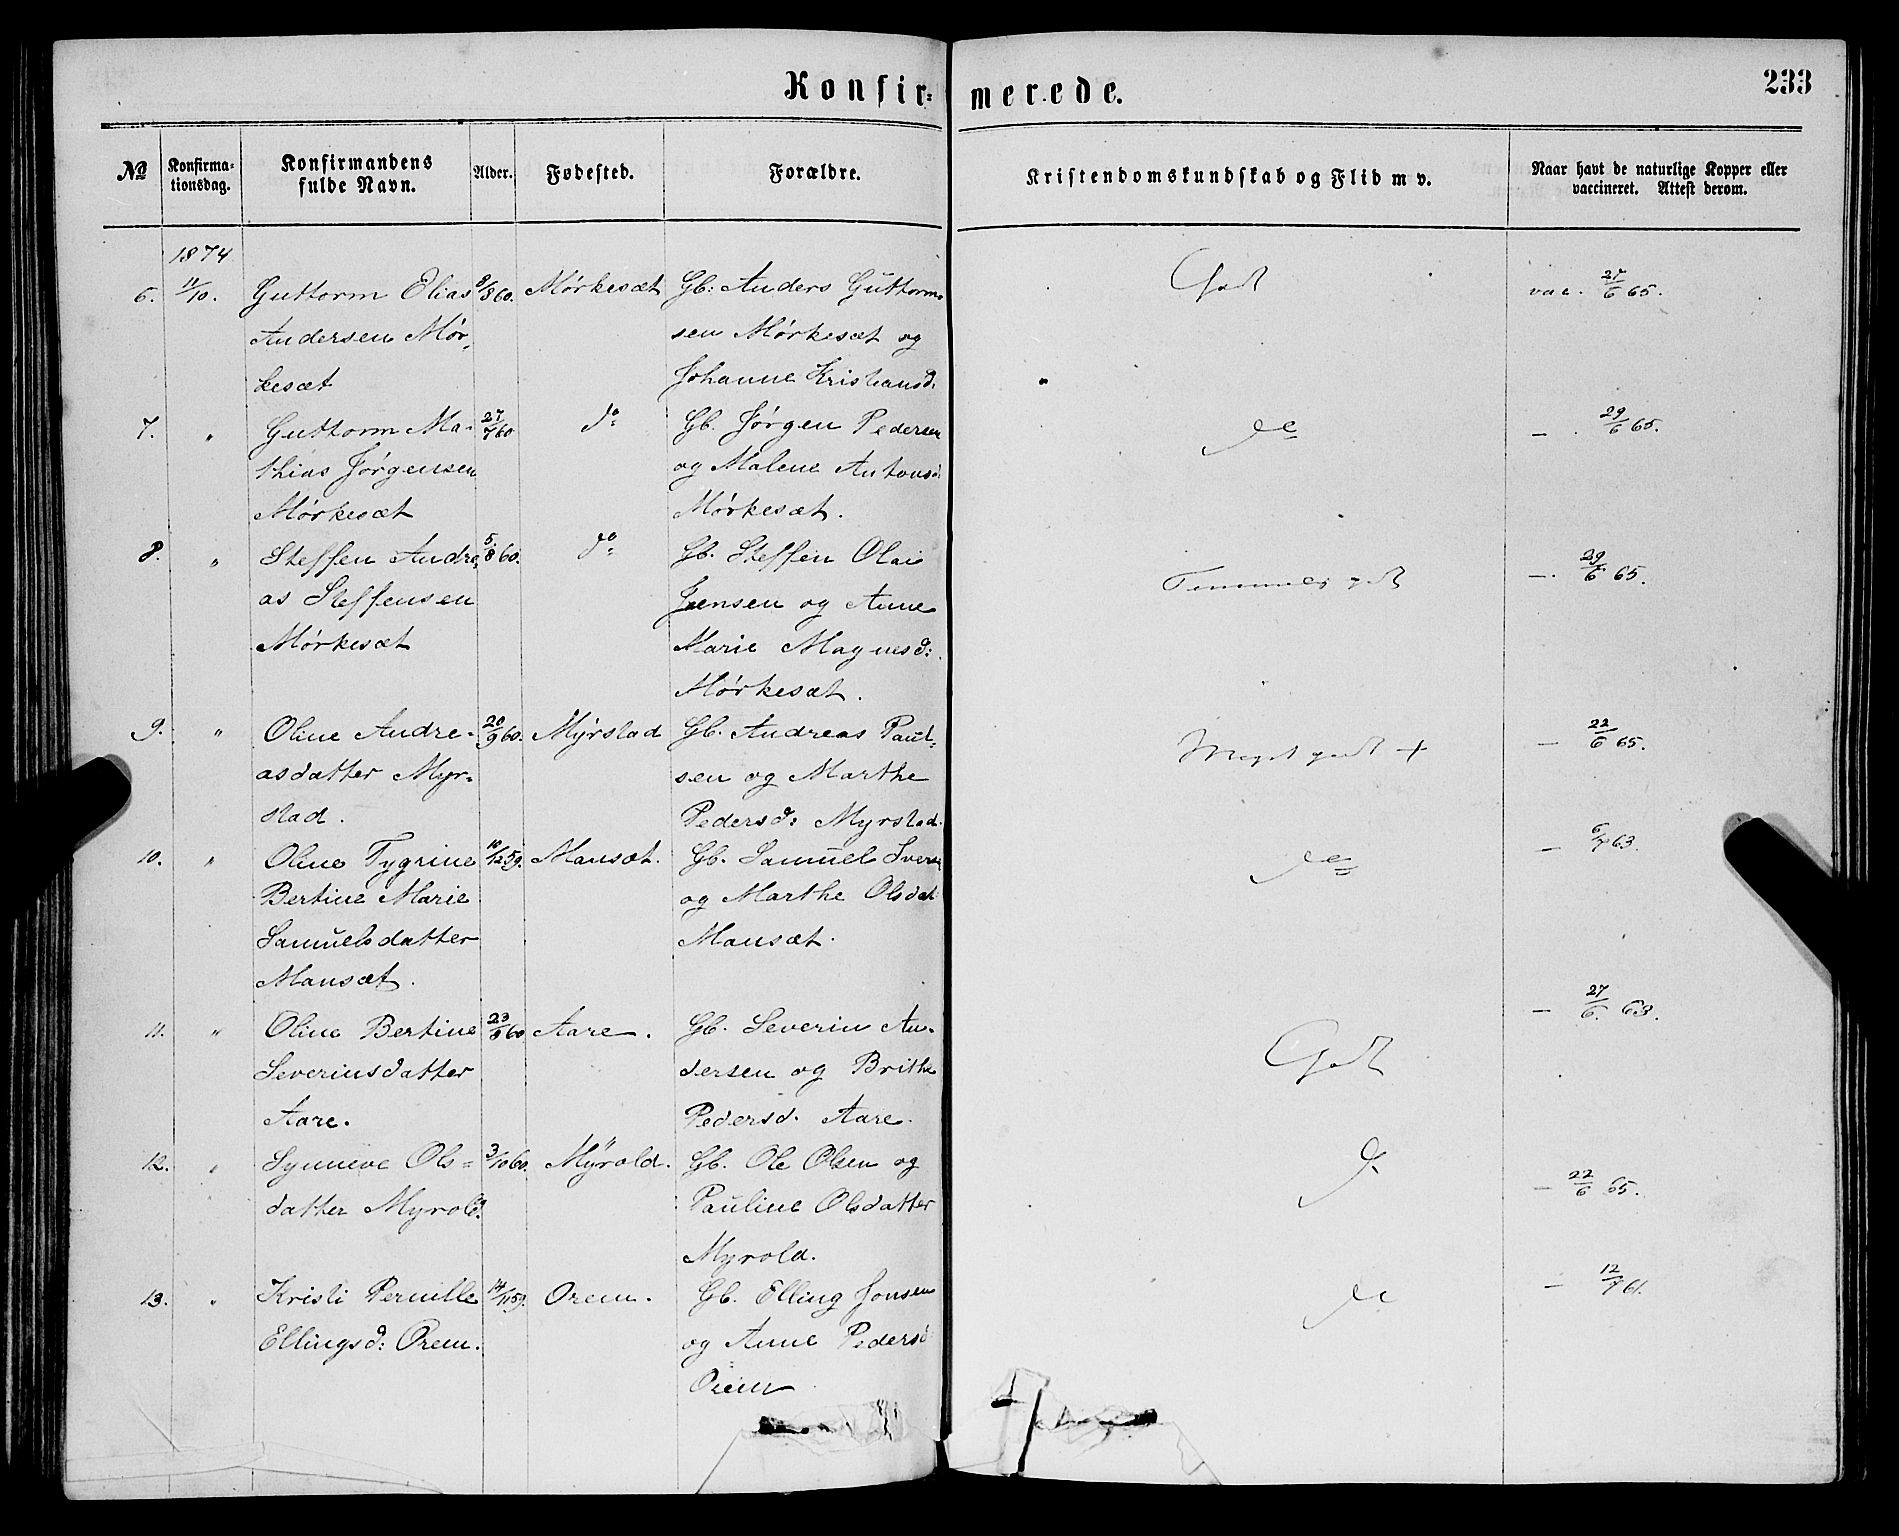 Konfir=
merede.
233
No
Konfirma=
tionsdag.
Konfirmandens
fulde Navn.
Alder.
Fødested.
Forældre.
Kristendomskundskab og Flid m v.
Naar havt de naturlige Kopper eller
vaccineret. Attest derom.
1874
6. 11/10. Guttorm Elias 9/8 60. Mørkesæt Gb: Anders Guttorm- Godt vac. 27/6 65.
Andersen Mør- sen Mørkesæt og
kesæt Johanne Kristiansd:
7. " Guttorm Ma- 27/7 60 do Gb. Jørgen Pedersen do — 29/6 65.
thias Jørgensen og Malene Antonsd:
Mørkesæt Mørkesæt.
8. " Steffen Andre- 5/8 60. do Gb. Steffen Olai Temmelig godt — 29/6 65.
as Steffensen Jensen og Anne
Mørkesæt Marie Magnesd:
Mørkesæt.
9. " Oline Andre- 20/9 60. Myrstad Gb. Andreas Paul- Meget godt + — 22/6 65.
asdatter Myr- sen og Marthe
stad. Pedersd: Myrstad.
10. " Oline Tygrine 10/12 59. Mansæt. Gb. Samuel Ivers. do — 6/7 63.
Bertine Marie og Marthe Olsdat
Samuelsdatter Mansæt.
Mansæt.
11. " Oline Bertine 23/9 60 Aare. Gb. Severin An- Godt — 27/6. 63.
Severinsdatter dersen og Brithe
Aare. Pedersd. Aare.
12. " Synneve Ols- 3/10 60. Myrold. Gb. Ole Olsen og do — 22/6 65.
datter Myrold. Pauline Olsdatter
Myrold.
13. " Kristi Pernille 14/11 59. Orem. Gb. Elling Jonsen do — 12/7 61.
Ellingsd: Orem. og Anne Pedersd
Orem